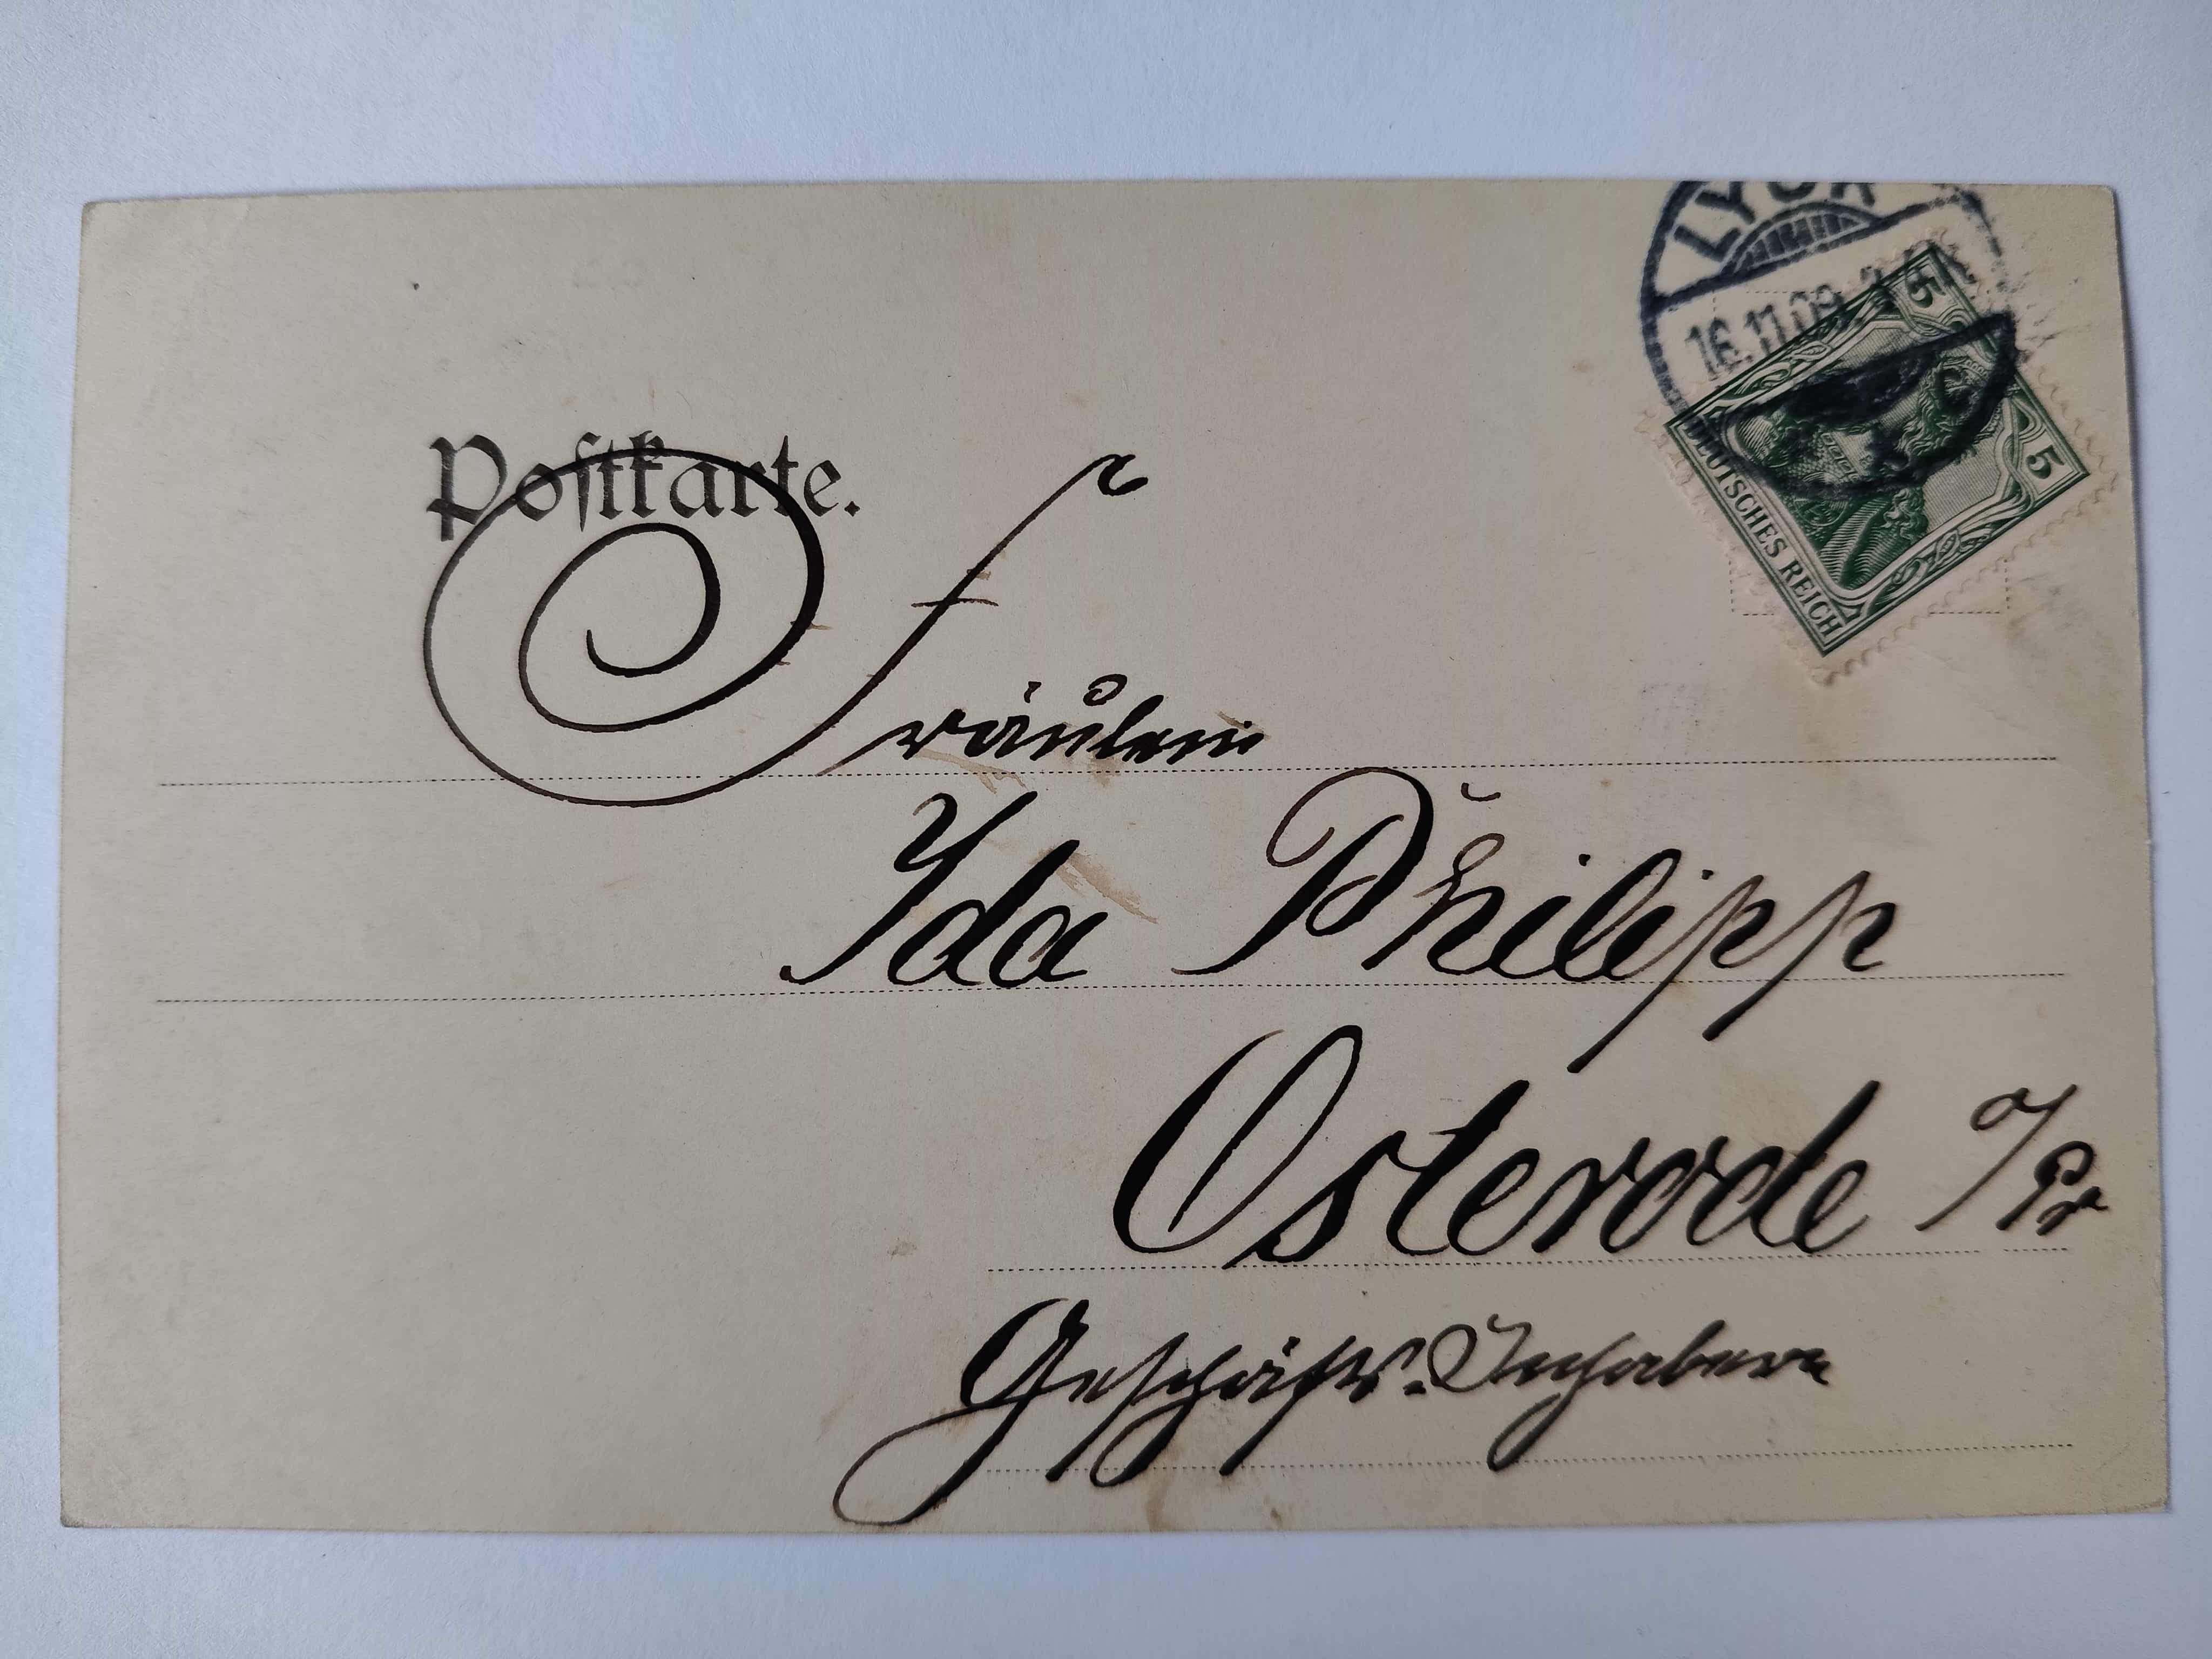 LYCK
16.11.09.
5
5
DEUTSCHES REICH
Postkarte.
Fräulein
Ida Philipp
Osterode O/Pr
Geschäfts-Inhaberin